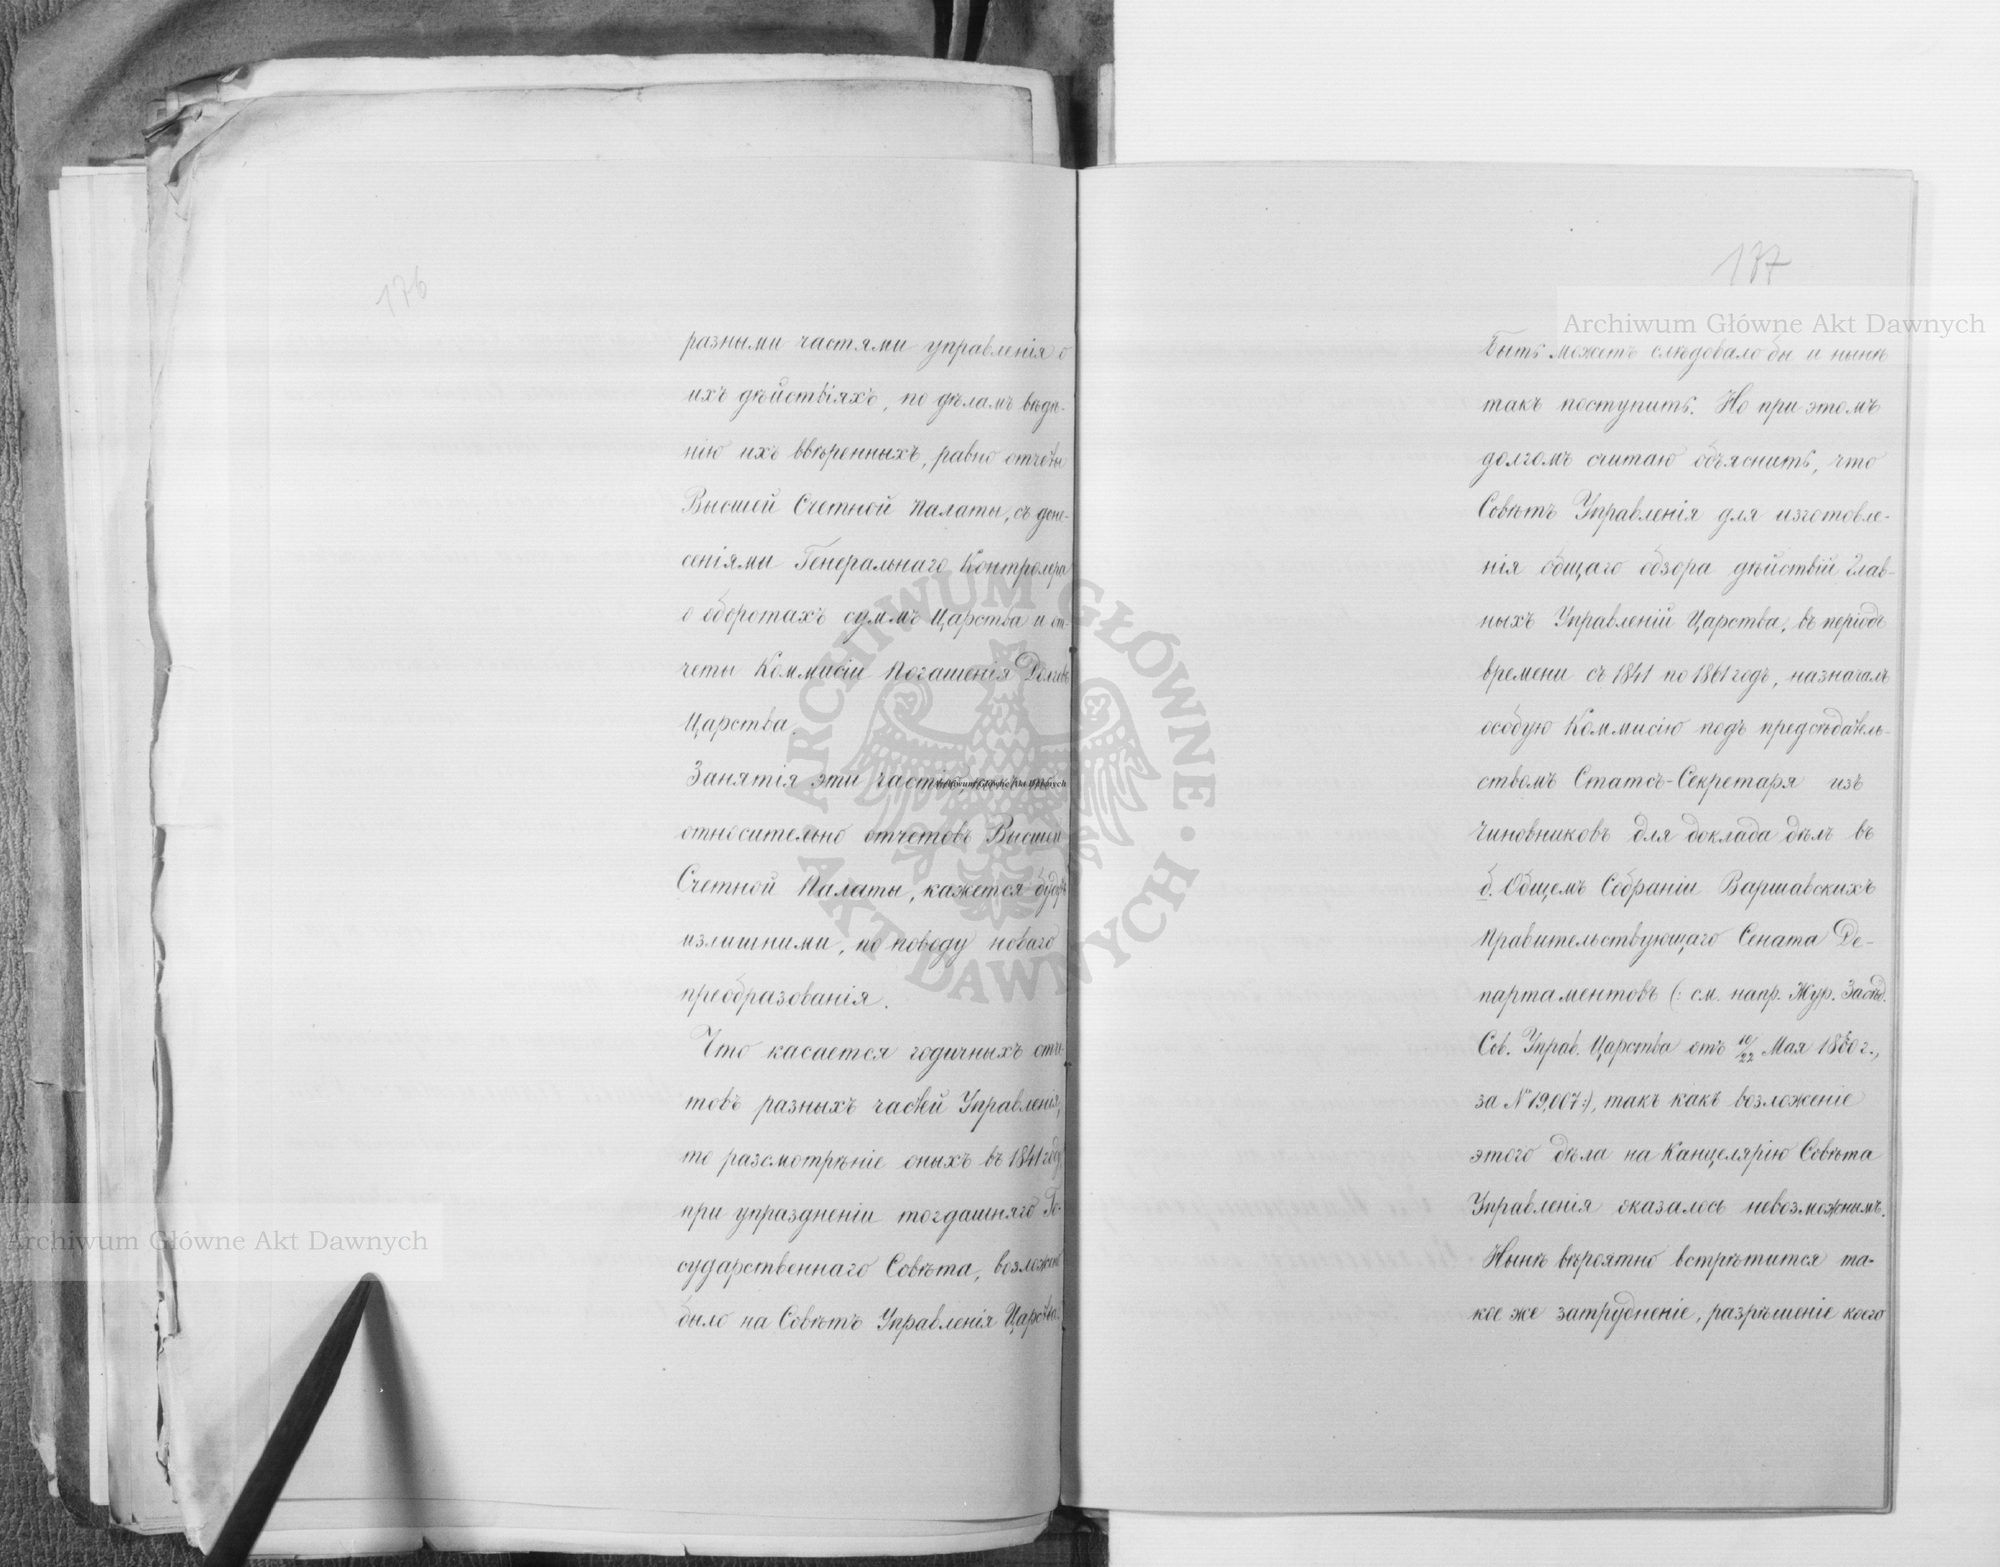 176
разными частями управленія о
ихъ дѣйствіяхъ, по дѣламъ вѣдѣ-
нію ихъ ввѣренныхъ, равно отчеты
Высшей Счетной Палаты, съ доне-
сеніями Генеральнаго Контролера
о оборотахъ суммъ Царства и от-
четы Коммисіи Погашенія Долговъ
Царства.
Занятія эти частію,
относительно отчетовъ Высшей
Счетной Палаты, кажется будутъ
излишними, по поводу новаго
преобразованія.
Что касается годичныхъ отче-
товъ разныхъ частей Управленія,
то разсмотрѣніе оныхъ въ 1841 году
при упраздненіи тогдашняго Го-
сударственнаго Совѣта, возложено
было на Совѣтъ Управленія Царства.
177
Быть можетъ слѣдовало бы и нынѣ
такъ поступить. Но при этомъ
долгомъ считаю объяснить, что
Совѣтъ Управленія для изготовле-
нія общаго обзора дѣйствій Глав-
ныхъ Управленій Царства, въ періодъ
времени съ 1841 по 1861 годъ, назначалъ
особую Коммисію подъ предсѣдатель-
ствомъ Статсъ-Секретаря изъ
чиновниковъ для доклада дѣлъ въ
б. Общемъ Собраніи Варшавскихъ
Правительствующаго Сената Де-
партаментовъ (: см. напр. Жур. Засѣд.
Сов. Управ. Царства отъ 10/22 Мая г.,
за № 19,007:), такъ какъ возложеніе
этого дѣла на Канцелярію Совѣта
Управленія оказалось невозможнымъ.
Нынѣ вѣроятно встрѣтится та-
кое же затрудненіе, разрѣшеніе коего
Archiwum Główne Akt Dawnych
Archiwum Główne Akt Dawnych
Archiwum Główne Akt Dawnych
ARCHIWUM GŁÓWNE AKT DAWNYCH